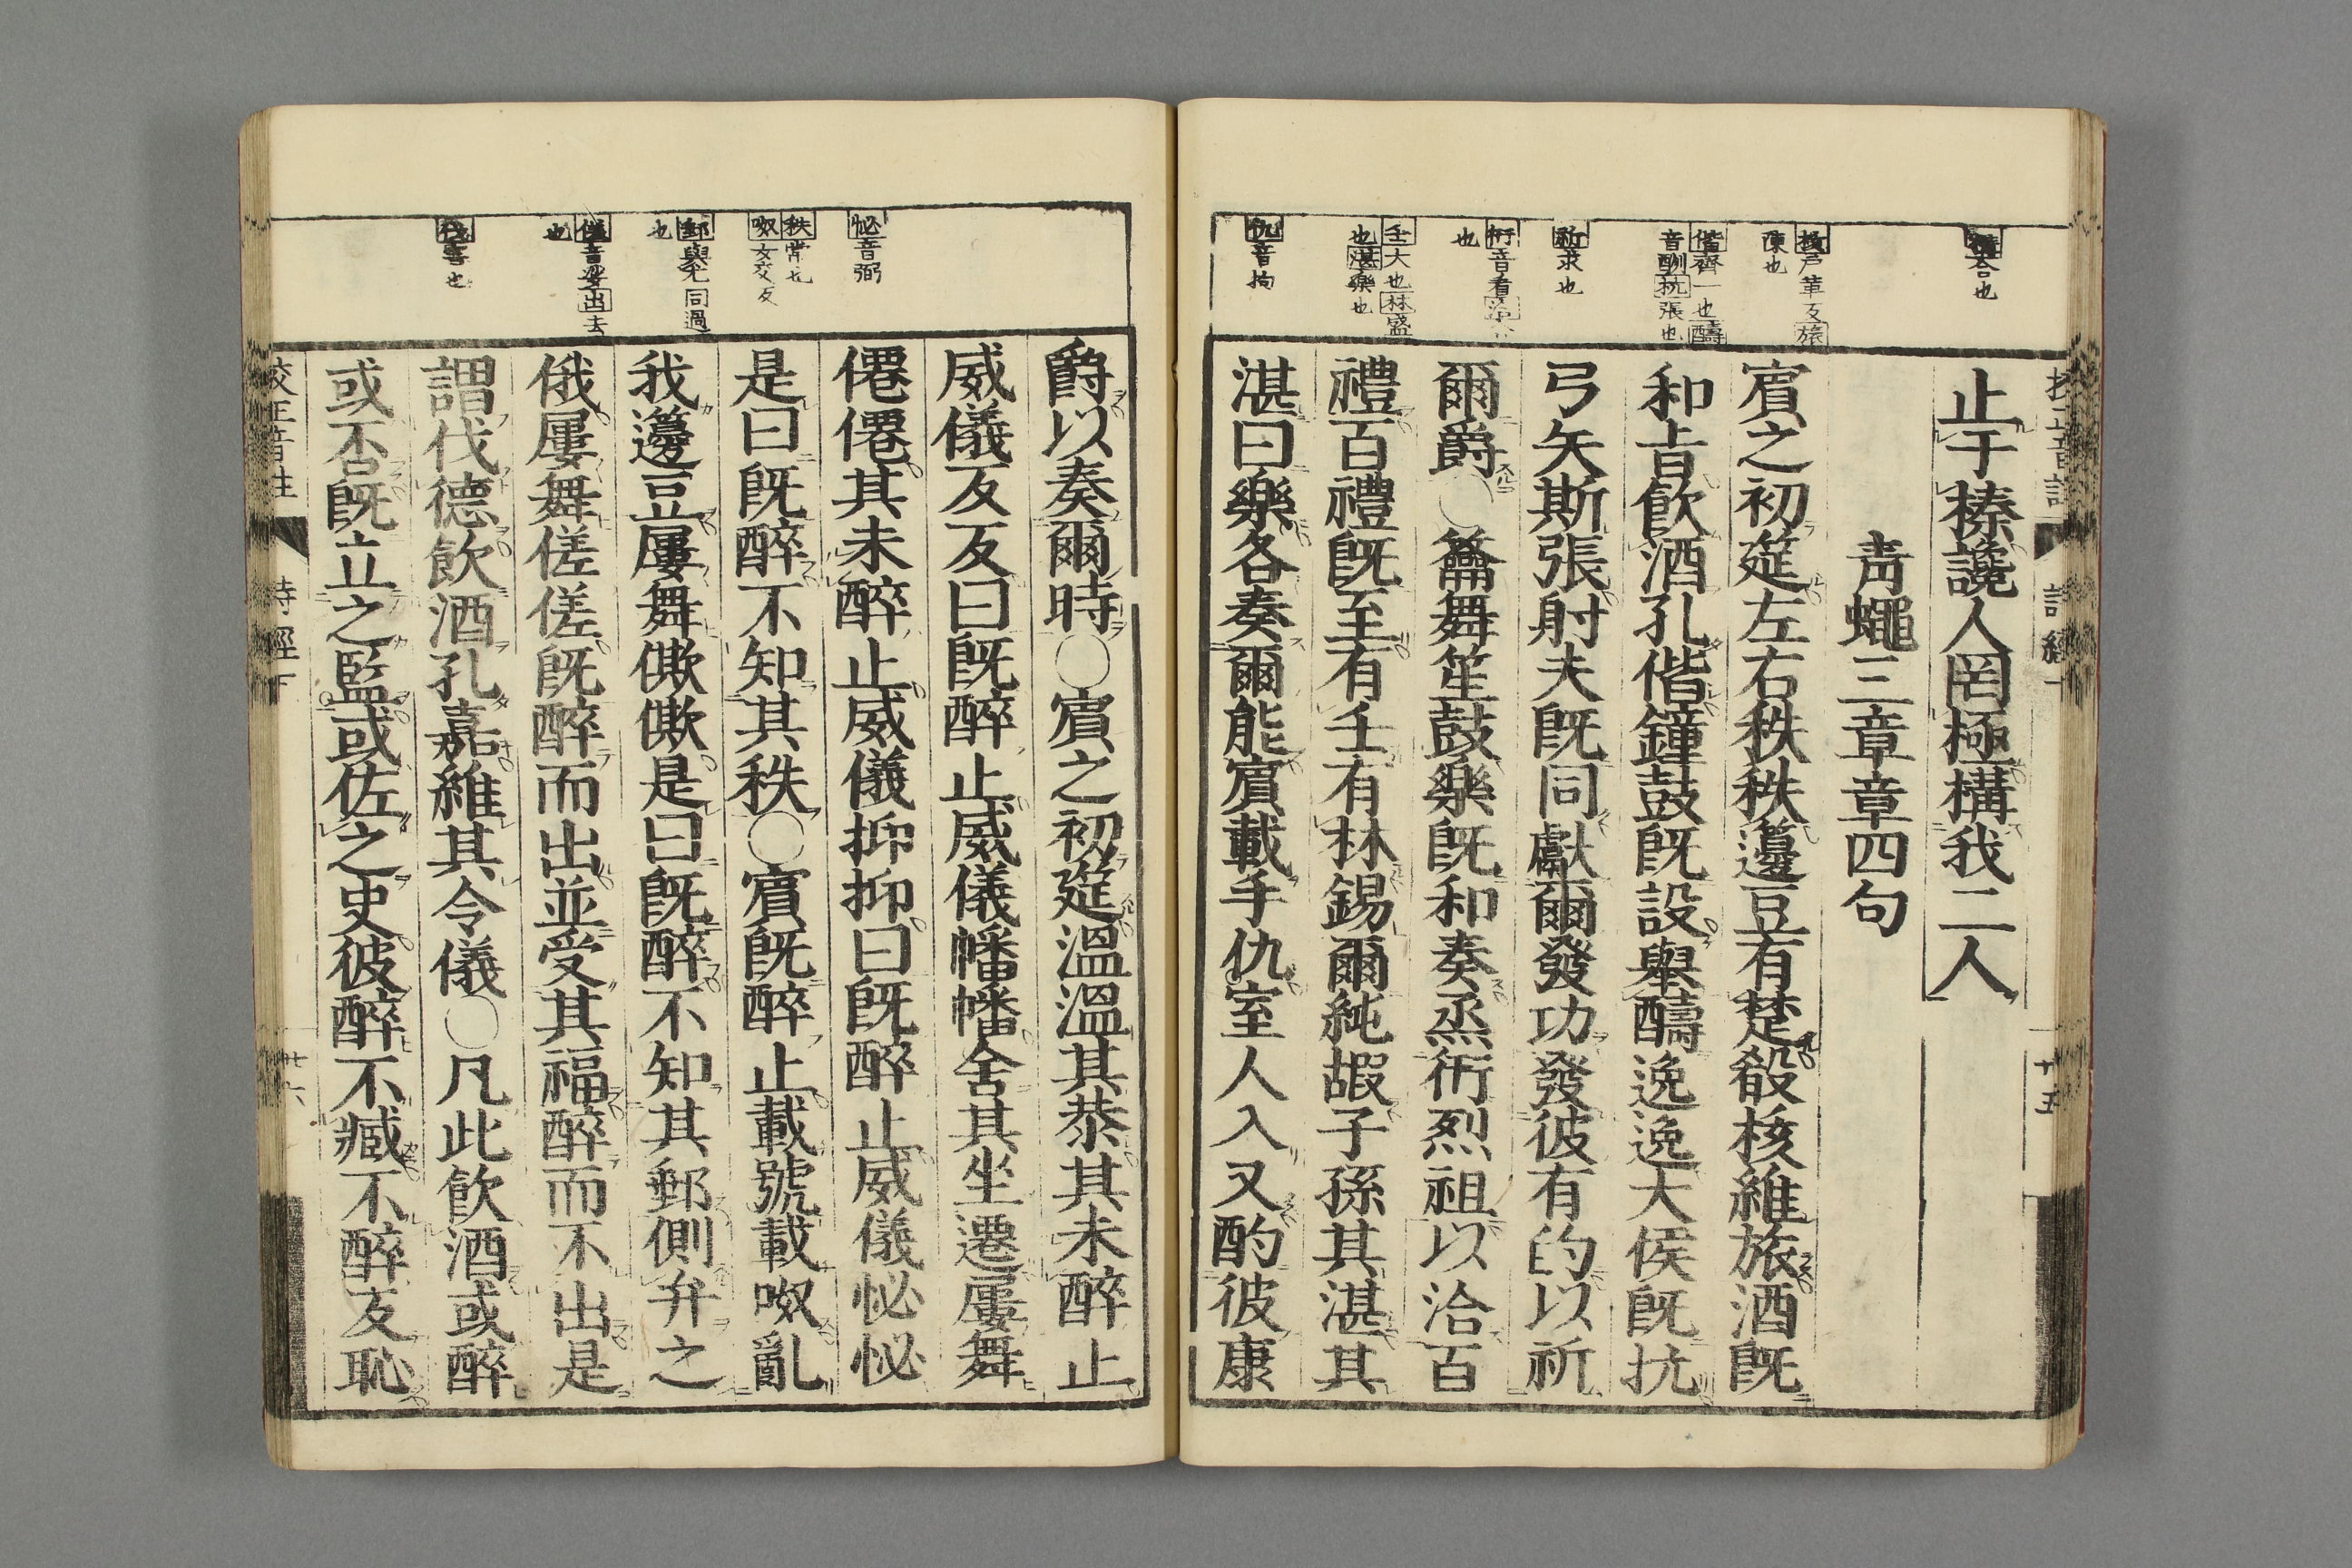 止于榛讒人罔極構我二人
靑蠅三章章四句
賓之初筵左右秩秩籩豆有楚殽核維旅酒旣
和旨飮酒孔偕鐘鼓旣設舉醻逸逸大侯旣抗
弓矢斯張射夫旣同獻爾發功發彼有的以祈
爾爵○籥舞笙鼓樂旣和奏烝衎烈祖以洽百
禮百禮旣至有壬有林錫爾純嘏子孫其湛其
湛曰樂各奏爾能賓載手仇室人入又酌彼康
爵以奏爾時○賓之初筵溫溫其恭其未醉止
威儀反反曰旣醉止威儀幡幡舍其坐遷屢舞
僊僊其未醉止威儀抑抑曰旣醉止威儀怭怭
是曰旣醉不知其秩○賓旣醉止載號載呶亂
我籩豆屢舞僛僛是曰旣醉不知其郵側弁之
俄屢舞傞傞旣醉而出並受其福醉而不出是
謂伐德飮酒孔嘉維其令儀○凡此飮酒或醉
或否旣立之監或佐之史彼醉不臧不醉反恥
合也
核戸革反旅
陳也
偕齊一也醻
音酬抗張也
祈求也
衎音看
也
壬大也林盛
也湛樂也
仇音拘
怭音弼
秩常也
呶女交反
郵與尤同過
也
傞音娑出去
也
伐害也
詩經下
十五